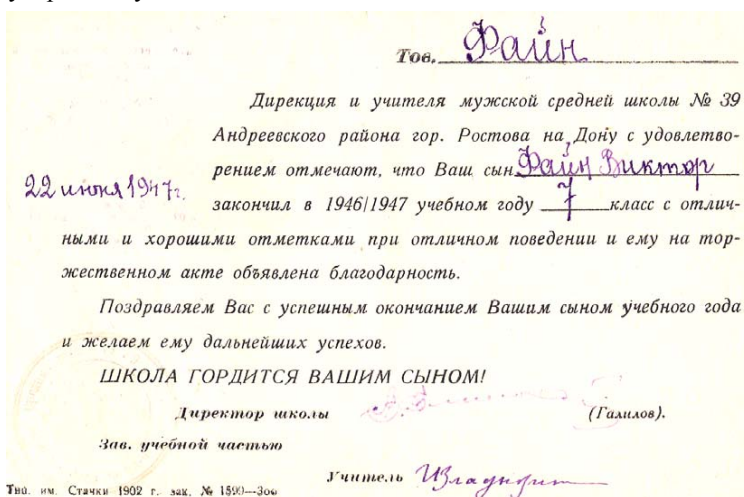 Тов. Файн
Дирекция и учителя мужской средней школы № 39
Андреевского района гор. Ростова на Дону с удовлетво-
рением отмечают, что Ваш сын Файн Виктор
22 июня 1947г.
закончил в 1946/1947 учебном году 7 класс с отлич-
ными и хорошими отметками при отличном поведении и ему на тор-
жественном акте объявлена благодарность.
Поздравляем Вас с успешным окончанием Вашим сыном учебного года
и желаем ему дальнейших успехов.
ШКОЛА ГОРДИТСЯ ВАШИМ СЫНОМ!
Директор школы (Галилов).
Зав. учебной частью
Учитель
Тип. им. Стачки 1902 г. зак. № 1599—300